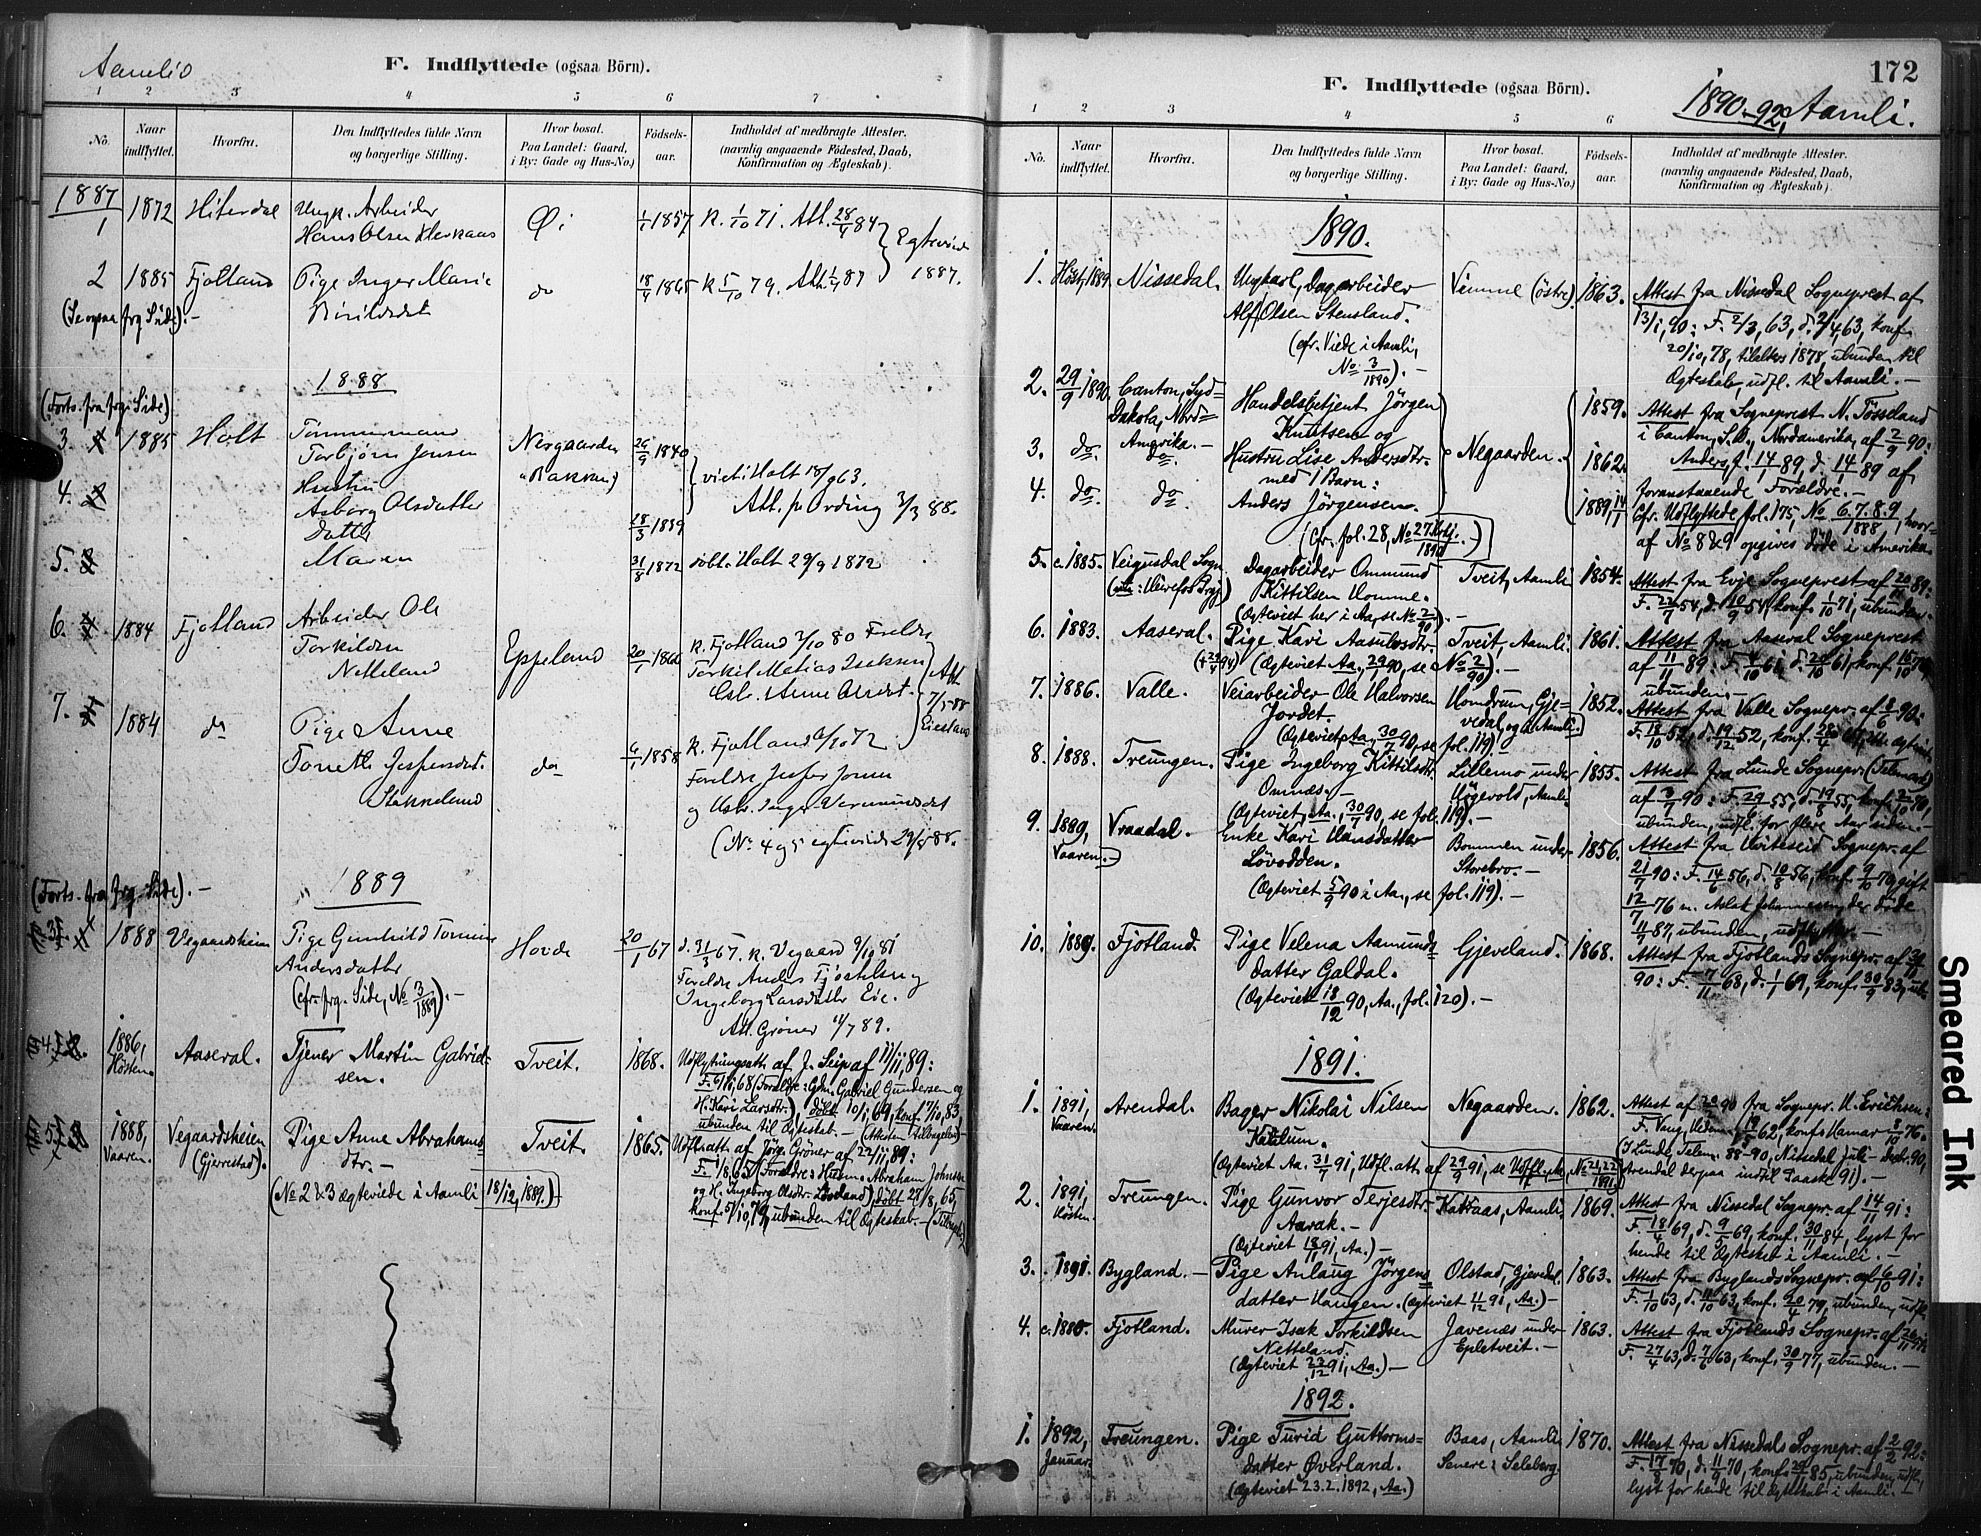 Aamli
F. Indflyttede (ogsaa Börn).
1 2 3 4 5 6 7
No.
Naar indflyttet.
Hvorfra.
Den Indflyttedes fulde Navn og borgerlige Stilling.
Hvor bosat. Paa Landet: Gaard, i By: Gade og Hus-No.)
Födsels-aar.
Indholdet af medbragte Attester. (navnlig angaaende Födested, Daab, Konfirmation og Ægteskab).
1887
1 1872 Hiterdal Ungk. Arbeider 1/1 1857 K. 1/10 71. Att. 28/4 84
Hans Olsen Øi Egteviede
2 1885 Fjotland Pige Inger Marie do 18/4 1865 K 5/10 79. Att. 87 1887.
(Se ogsaa frg Side). -
1888
(Forts. fra frg. Side)
3. 1885 Holt Tømmermand Nesgaarden 26/9 1840
Torbjørn Jensen (Bakken)
4. Hustru viet i Holt 18/9 63.
Asborg Olsdatter 28/3 1839 Att. pr Ording 3/3 88.
Datter
5. Maren 31/8 1872 döbt i Holt 29/9 1872
6. 1884 Fjotland Arbeider Ole Eppeland 20/1 K. Fjotland 80 Foreldre
Torkildsen Torkil Matias Att.
Netteland
7. 1884 do Pige Anne do 1858 K. Fjotland 72
Tonette Jespersdat. Foreldre Jesper
Stakkeland og Hstr. Inger
(No. 4 og 5 egteviede 29/5 88.
(Forts. fra frg. Side). - 1889
3. 1888 Vegaardsheien Pige Gunhild Tomine Hovde 20/1 67 d. 31/3 67. K. Vegaard 9/10 81
Andersdatter Foreldre Anders og
(cfr. frg. Side, No 3/1889). - Ingeborg Larsdatter Eie.
Att. Gröner 11/7 89.
4. 1886, Høsten. Aaseral. Tjener Martin Gabriel- Tveit. 1868. Udflytningsatt. af J. Seip af 11/11, 89:
sen. (Foreldre: Gdm. Gabriel Gundersen og
H. Kari Larsdtr.), döbt 10/1, 69, konf. 17/10, 83,
ubunden til Ægteskab. - (Attesten tilbagelev.) -
5. 1888, Vaaren. Vegaardsheien (Gjerrestad). Pige Anne Abrahams- Tveit. 1865. Udfl.att. af Jörg. Gröner af 22/11, 89:
dtr. - (Foreldre: Husm. Abraham Johnsen
(No 2 & 3 ægteviede i Aamli 18/12, 1889.) - og H. Ingeborg Olsdtr. döbt 27/8, 65,
konf. 5/10, 79, ubunden til Ægteskab. -
172
F. Indflyttede (ogsaa Börn).
1890-92, Aamli.
1 2 3 4 5 6
No.
Naar indflyttet.
Hvorfra.
Den Indflyttedes fulde Navn og borgerlige Stilling.
Hvor bosat. Paa Landet: Gaard, i By: Gade og Hus-No.)
Födsels-aar.
Indholdet af medbragte Attester. (navnlig angaaende Födested, Daab, Konfirmation og Ægteskab).
1890.
1. Høst, 1889. Nissedal. Ungkarl, Dagarbeider Vimme (østre). 1863. Attest fra Nissedal Sogneprest af
Alf Olsen Stensland. 13/1, 90: F. 2/3, 63, d. 2/4, 63, konf.
(cfr. Viede i Aamli, 20/10, 78, tilalters 1878, ubunden til
No 3/1890). - Ægteskab, udfl. til Aamli. -
2. 29/9 1890. Canton, Syd- Handelsbetjent Jörgen 1859. Attest fra Sogneprest N. Tösseland
Dakota, Nord- Knutsen og i Canton, S.D., Nordamerika, af 2/9 90:
Amerika. -
3. do. do. Hustru Lise Andersdtr. Negaarden. 1862. Anders, f. 14/1 89, d. 14/ 89 af
med 1 Barn: foranstaaende Forældre. -
4. do. do. Anders Jörgensen. 1889, 14/1 Cfr. Udflyttede fol. 175, No 6.7.8.9/1888, hvor-
(Cfr. fol. 28, No 27 1890.) af No 8 & 9 opgives døde i Amerika.
5. c. 1885. Veigusdal Sogn Dagarbeider Ommund Tveit, Aamli 1854. Attest fra Evje Sogneprest af 20/ 89:
Kittilsen Homme. F. 22/7 54, d. 10/9 54, konf. 1/10 71, ubunden.
(Ægteviet her i Aa., se No 2/90). -
6. 1883. Aaseral. Pige Kari Aasulvsdtr. Tveit, Aamli. 1861. Attest fra Aaseral Sogneprest
(Ægteviet Aa., 29/ 90, se No 2/90). - af 11/11 89: F. 4/10 61, d. 20/10 61, konf. 15/10 76,
ubunden. -
7. 1886. Valle. Veiarbeider Ole Halvorsen Homdrum, Gje- 1852. Attest fra Valle Sognepr. af 8/6 90:
Jordet. vedal, og Aamli. F. 18/10 52, d. 19/12 52, konf. 28/4
(Ægteviet Aa. 30/7 90, se fol. 119). -
8. 1888. Treungen. Pige Ingeborg Kittilsdtr. Lillemo under 1855. Attest fra Lunde Sognepr. (Telemark)
Omnæs. - Högevold, Aamli. af 3/7 90: F. 29/ 55, d. 19/ 55, konf. 2/10 70,
(Ægteviet, Aa., 30/7 90, se fol. 119). - ubunden, udfl. for flere Aar siden. -
9. 1889, Vaaren. - Vraadal. Enke Kari Hansdatter Bommen under 1856. Attest fra Hviteseid Sognepr. af
Lövodden. Storebro. - 21/7 90: F. 14/6 56, d. 10/8 56, konf. 9/10 70, gift
(Ægteviet 5/9 90 i Aa., se fol. 119). - 12/7 76 m. Aslak Johannessen, der döde
11/7 87, ubunden,
10. 1889. Fjotland. Pige Velena Aamunds- Gjeveland. 1868. Attest fra Fjotlands Sognepr. af 30/10
datter Galdal. 90: F. 7/11 68, d. 1/1 69, konf. 30/9 83, ub.
(Ægteviet 18/12 90, Aa., fol. 120). -
1891.
1. 1891, Vaaren. Arendal. Bager Nikolai Nilsen Negaarden. 1862. Attest af 90 fra Sognepr. H. Erichsen:
F. Vang, Hedem. 62, konf. Hamar 8/10 76.
(Ægteviet Aa. 31/7 91, Udfl. att. af 29/9 91, se Udflyttede No 21, 22/1891) (I Lunde, Telem. 88-90, Nissedal Juli - Decbr. 90,
Arendal derpaa indtil Paaske 91). -
2. 1891, Høsten. Treungen. Pige Gunvor Terjesdtr. Katraas, Aamli. 1869. Attest fra Nissedal Sognepr. af 14/11 91:
Aarak. - F. 18/4 69, d. 9/5 69, konf. 30/11 84, lyst for
(Ægteviet 18/11 91, Aa.) - hende til Ægteskab i Aamli. -
3. 1891. Bygland. - Pige Anlaug Jörgens- Olstad, Gjevdal. 1863. Attest fra Byglands Sognepr. af 6/10 91:
datter Haugen. (Ægteviet 11/12 91, Aa.) - F. 1/10 63, d. 11/10 63, konf. 20/ 79, ubunden, udfl.
4. c. 1880. Fjotland. Murer Isak Torkildsen Javenæs under 1863. Attest fra Fjotlands Sognepr. af 26/11 91:
Netteland. Epletveit. - F. 27/4 63, d. 7/6 63, konf. 30/9 77, ubunden. -
(Ægteviet 22/12 91, Aa.) -
1892.
1. 1892, Januar. Treungen. Pige Turid Guttorms- Baas, Aamli 1870. Attest fra Nissedals Sognepr. af 2/2 92:
datter Øverland. Senere: Seleberg. F. 17/8 70, d. 11/9 70, konf. 85, ubunden, udfl.,
(Ægteviet 23.2.1892, Aa.) lyst for hende til Ægteskab i Aamli. -
Smeared Ink